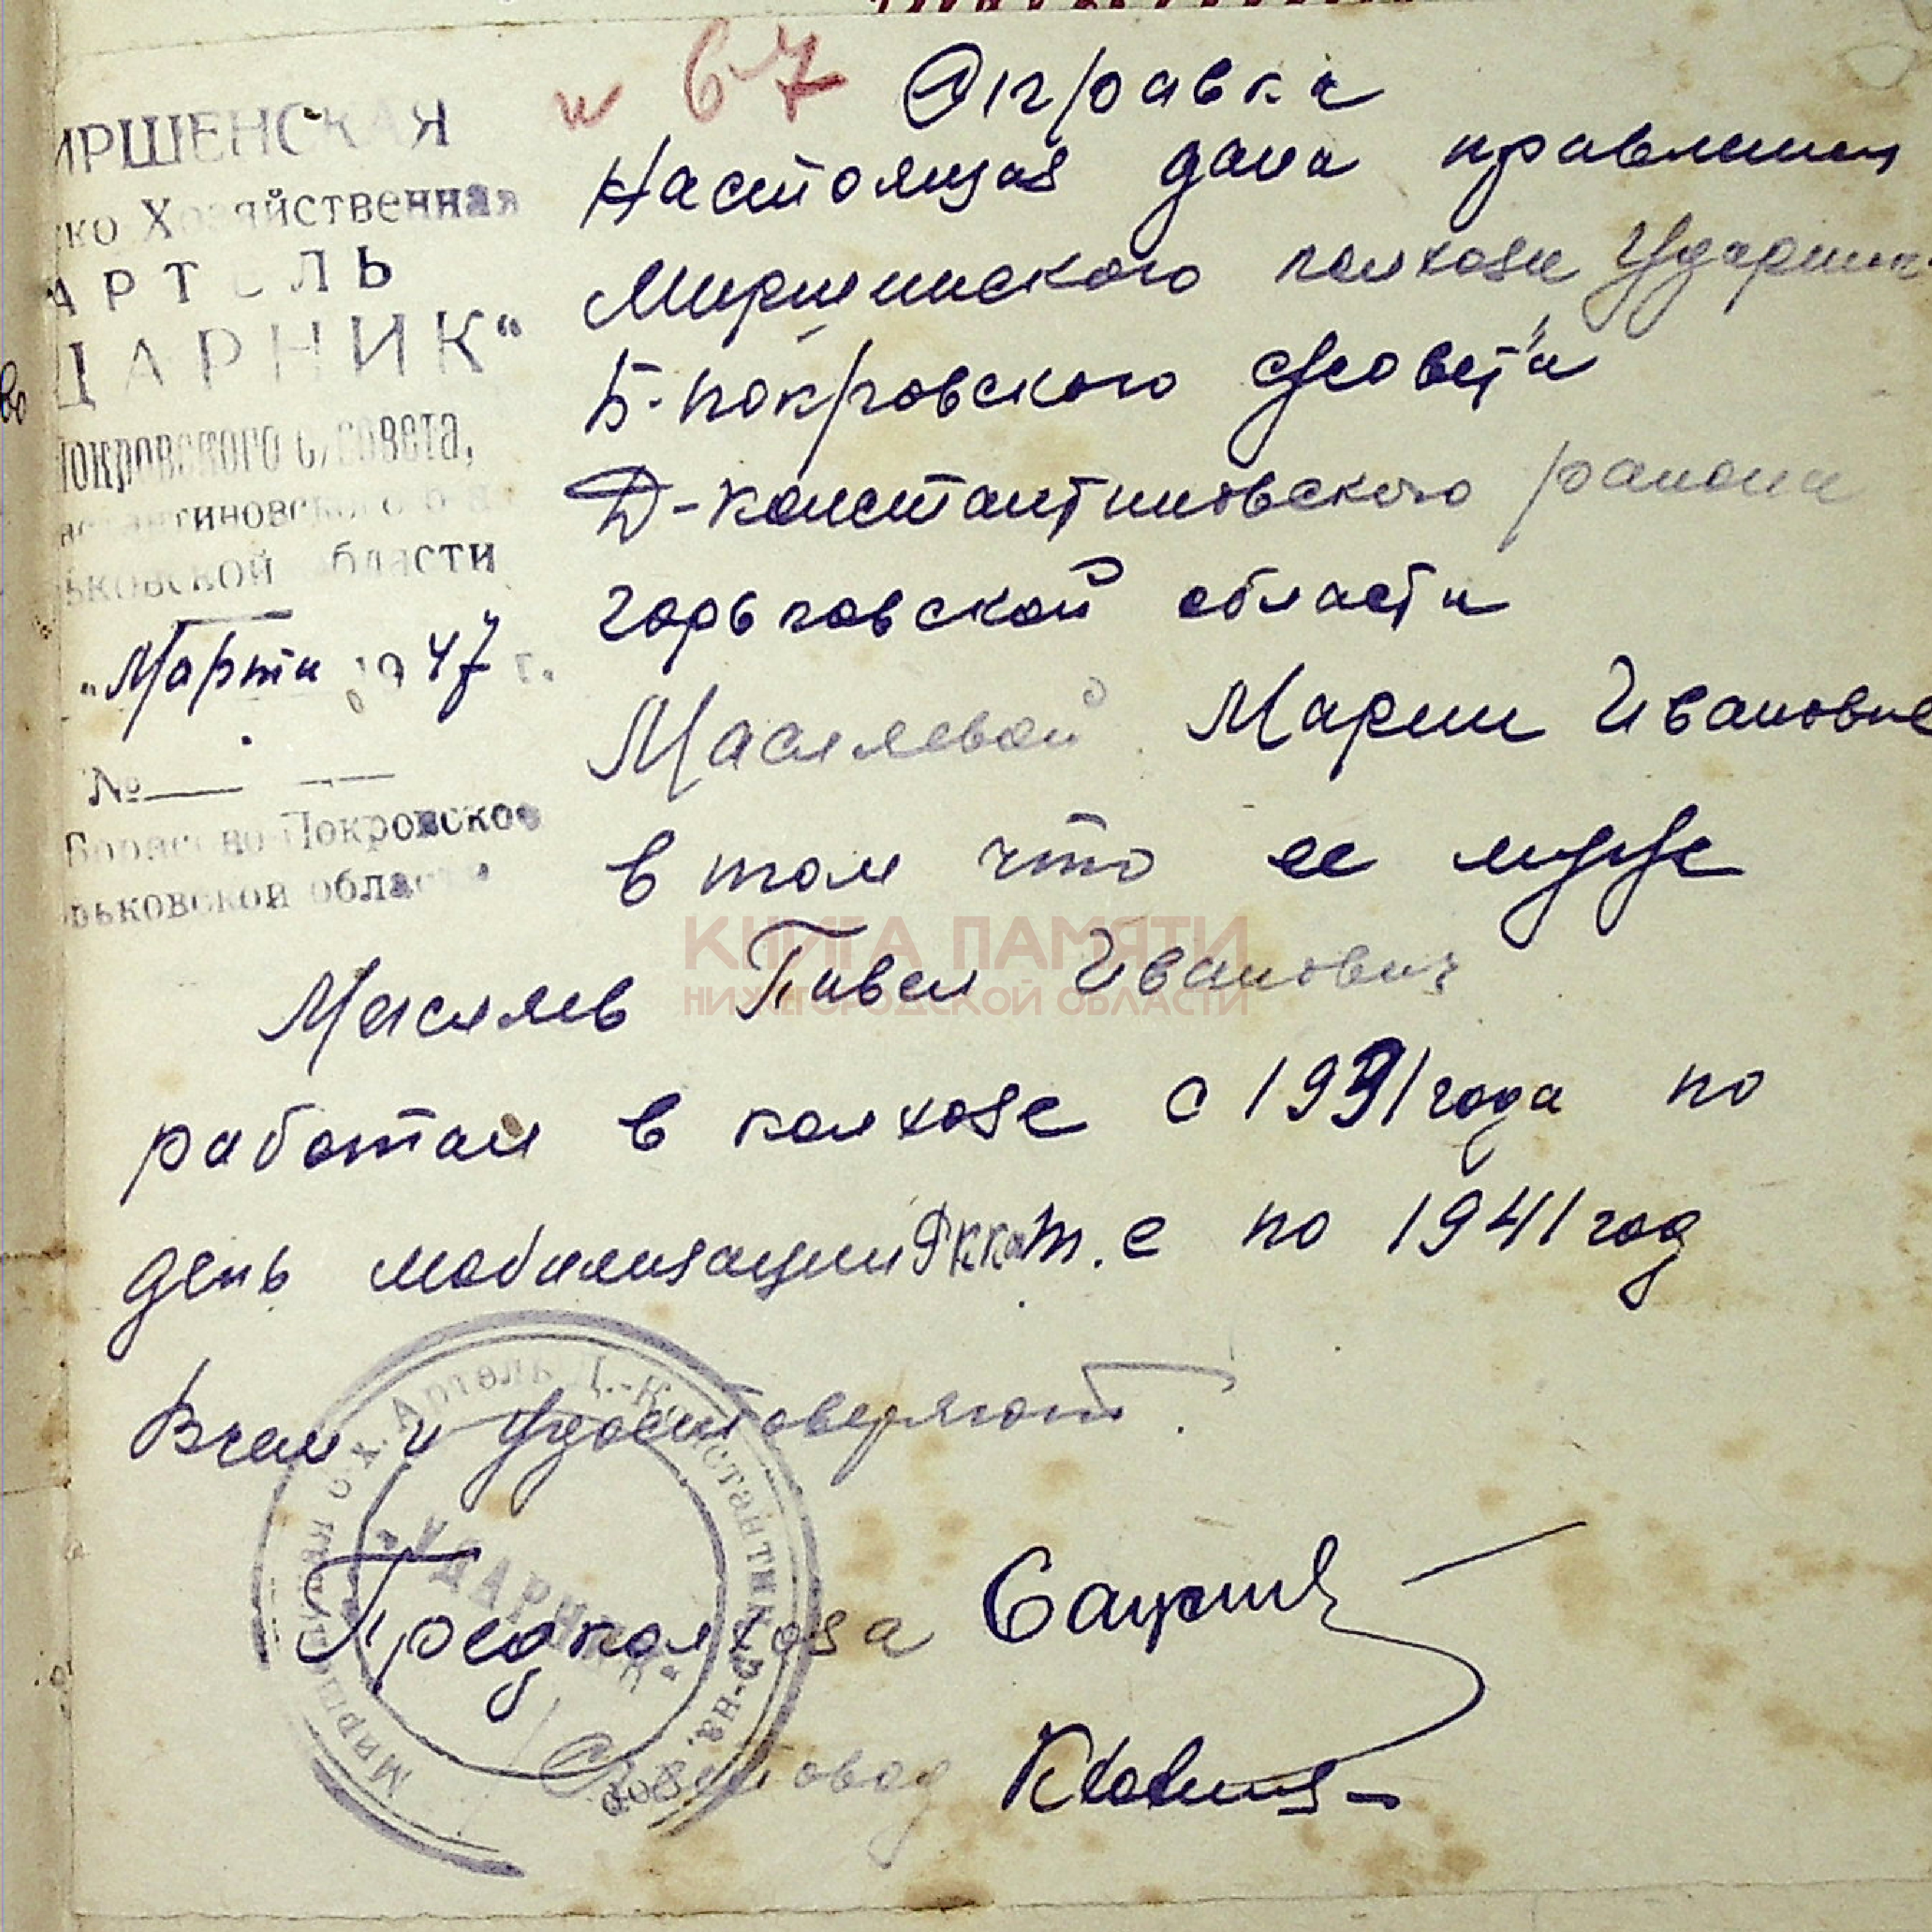 и 67 Справка
ИРШЕНСКАЯ
ко Хозяйственная
АРТЕЛЬ
ДАРНИК“
Покровского с/совета,
нстантиновского р-на
рьковской области
„Марта 1947 г.
№
Борисово-Покровское
рьковской области
Настоящая дана правлением
Миршинского колхоза Ударник
Б-покровского с/совета
Д-константиновского района
горьковской области
Масляевой Марии Ивановне
в том что ее муж
Масляев Павел Иванович
работал в колхозе с 1931 года по
день мобилизации Ркка т.е по 1941 год
В чем и удостоверяют.
Предколхоза
Счетовод
Миршенская с.х. Артель Д.-Константин. р-на. Горьк. обл.
„УДАРНИК“
КНИГА ПАМЯТИ
НИЖЕГОРОДСКОЙ ОБЛАСТИ